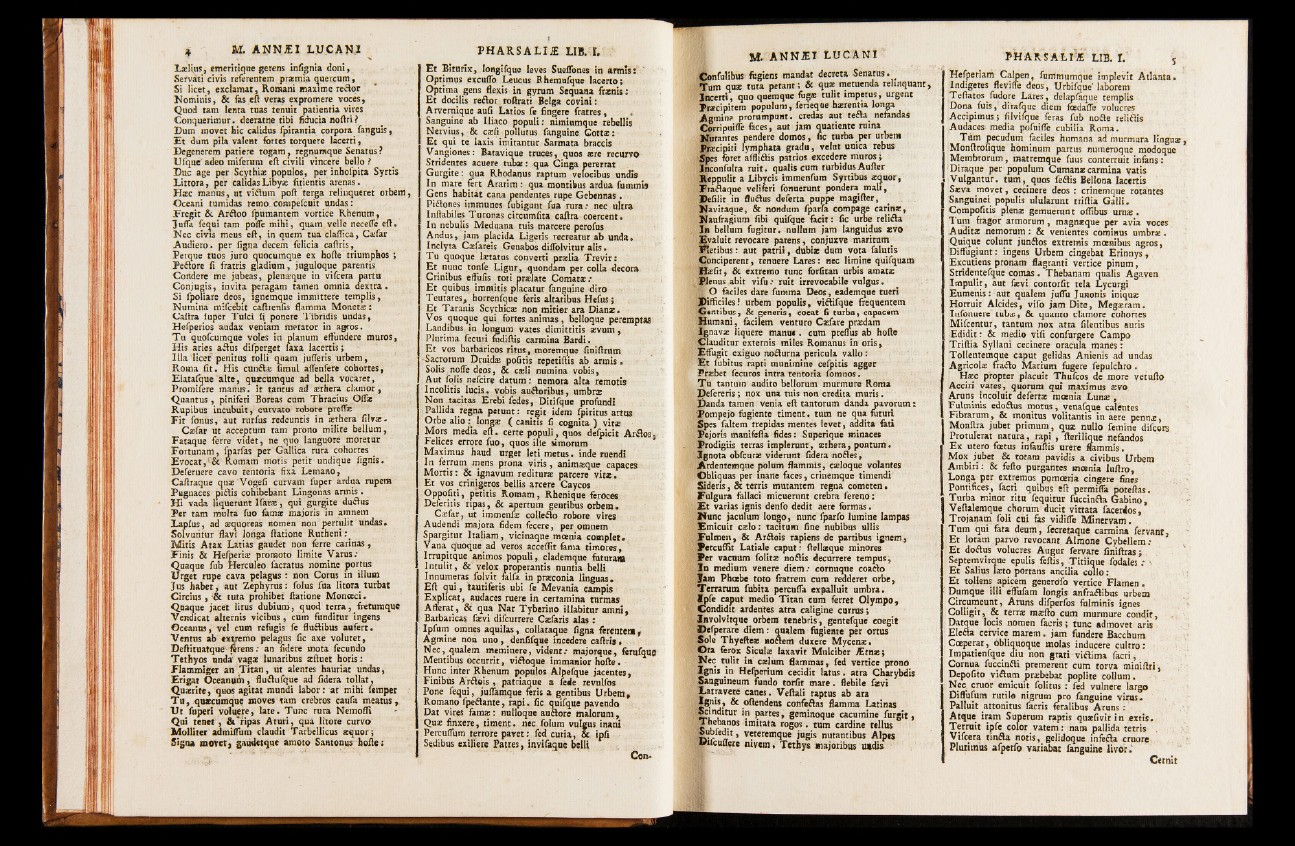 4 M. ANNÆI LUCANI
Lælius, emeritique gerens inſignia doni,
Servati civis referentem præmia quercum,
Si licet, exclamat, Romani maxime rector
Nominis, & fas eſt veras expromere voces,
Quod tam lenta tuas tenuit patientia vires
Conquerimur. deeratne tibi fiducia noſtri?
Dum movet hic calidus ſpirantia corpora ſanguis,
Et dum pila valent fortes torquere lacerti,
Degenerem patiere togam, regnumque Senatus?
Uſque adeo miſerum eſt civili vincere bello?
Duc age per Scythiæ populos, per inhoſpita Syrtis
Littora, per calidas Libyæ ſitientis arenas.
Hæc manus, ut victum poſt terga relinqueret orbem,
Oceani tumidas remo compeſcuit undas:
Fregit & Arctoo ſpumantem vortice Rhenum,
Juſſa ſequi tam poſſe mihi, quam velle neceſſe eſt.
Nec civis meus eſt, in quem tua claſſica, Cæſar
Audiero. per ſigna decem felicia caſtris,
Perque tuos juro quocumque ex hoſte triumphos;
Pectore ſi fratris gladium, juguloque parentis
Condere me jubeas, plenæque in viſcera partu
Conjugis, invita peragam tamen omnia dextra.
Si ſpoliare deos, ignemque immittere templis,
Numina miſcebit caſtrenſis flamma Monetæ:
Caſtra ſuper Tuſci ſi ponere Tibridis undas,
Heſperios audax veniam metator in agros.
Tu quoſcumque voles in planum effundere muros,
His aries actus diſperget ſaxa lacertis;
Illa licet penitus tolli quam juſſeris urbem,
Roma ſit. His cunctæ ſimul aſſenſere cohortes,
Elataſque alte, quæcumque ad bella vocaret,
Promiſere manus. it tantus ad æthera clamor,
Quantus, piniferi Boreas cum Thracius Oſſæ
Rupibus incubuit, curvato robore preſſæ
Fit ſonus, aut rurſus redeuntis in æthera ſilvæ.
Cæſar ut acceptum tam prono milite bellum,
Fataque ferre videt, ne quo languore moretur
Fortunam, ſparſas per Gallica rura cohortes
Evocat, & Romam motis petit undique ſignis.
Deſeruere cavo tentoria fixa Lemano,
Caſtraque quæ Vogeſi curvam ſuper ardua rupem
Pugnaces pictis cohibebant Lingonas armis.
Hi vada liquerunt Iſaræ, qui gurgite ductus
Per tam multa ſuo famæ majoris in amnem
Lapſus, ad æquoreas nomen non pertulit undas.
Solvuntur flavi longa ſtatione Rutheni:
Mitis Atax Latias gaudet non ferre carinas,
Finis & Heſperiæ promoto limite Varus:
Quaque ſub Herculeo ſacratus nomine portus
Urget rupe cava pelagus: non Corus in illum
Jus habet, aut Zephyrus: ſolus ſua litora turbat
Circius, & tuta prohibet ſtatione Monœci.
Quaque jacet litus dubium, quod terra, fretumque
Vendicat alternis vicibus, cum funditur ingens
Oceanus, vel cum refugis ſe fluctibus aufert.
Ventus ab extremo pelagus ſic axe volutet,
Deſtituatque ferens: an ſidere mota ſecundo
Tethyos unda vagæ lunaribus æſtuet horis:
Flammiger an Titan, ut alentes hauriat undas,
Erigat Oceanum, fluctuſque ad ſidera tollat,
Quærite, quos agitat mundi labor: at mihi ſemper
Tu, quæcumque moves tam crebros cauſa meatus,
Ut ſuperi voluere, late. Tunc rura Nemoſſi
Qui tenet, & ripas Aturi, qua litore curvo
Molliter admiſſum claudit Tarbellicus æquor;
Signa movet, gaudetque amoto Santonus hoſte:
PHARSALIÆ LIB. I.
Et Biturix, longiſque leves Sueſſones in armis:
Optimus excuſſo Leucus Rhemuſque lacerto;
Optima gens flexis in gyrum Sequana frænis:
Et docilis rector roſtrati Belga covini:
Arvernique auſi Latios ſe fingere fratres,
Sanguine ab Iliaco populi: nimiumque rebellis
Nervius, & cæſi pollutus ſanguine Cottæ:
Et qui te laxis imitantur Sarmata braccis
Vangiones: Batavique truces, quos ære recurvo
Stridentes acuere tubæ: qua Cinga pererrat
Gurgite: qua Rhodanus raptum velocibus undis
In mare fert Ararim: qua montibus ardua ſummis
Gens habitat cana pendentes rupe Gebennas.
Pictones immunes ſubigunt ſua rura: nec ultra
Inſtabiles Turonas circumſita caſtra coercent.
In nebulis Meduana tuis marcere peroſus
Andus, jam placida Ligeris recreatur ab unda.
Inclyta Cæſareis Genabos diſſolvitur alis.
Tu quoque lætatus converti prælia Trevir:
Et nunc tonſe Ligur, quondam per colla decora
Crinibus effuſis toti prælate Comatæ:
Et quibus immitis placatur ſanguine diro
Teutates, horrenſque feris altaribus Heſus;
Et Taranis Scythicæ non mitior ara Dianæ.
Vos quoque qui fortes animas, belloque peremptas
Laudibus in longum vates dimittitis ævum,
Plurima ſecuri fudiſtis carmina Bardi.
Et vos barbaricos ritus, moremque ſiniſtrum
Sacrorum Druidæ poſitis repetiſtis ab armis.
Solis noſſe deos, & cæli numina vobis,
Aut ſolis neſcire datum: nemora alta remotis
Incolitis lucis. vobis auctoribus, umbræ
Non tacitas Erebi ſedes, Ditiſque profundi
Pallida regna petunt: regit idem ſpiritus artus
Orbe alio: longæ ( canitis ſi cognita ) vitæ
Mors media eſt. certe populi, quos deſpicit Arctos,
Felices errore ſuo, quos ille timorum
Maximus haud urget leti metus. inde ruendi
In ferrum mens prona viris, animæque capaces
Mortis: & ignavum redituræ parcere vitæ.
Et vos crinigeros bellis arcere Caycos
Oppoſiti, petitis Romam, Rhenique feroces
Deſeritis ripas, & apertum gentibus orbem.
Cæſar, ut immenſæ collecto robore vires
Audendi majora fidem fecere, per omnem
Spargitur Italiam, vicinaque mœnia complet.
Vana quoque ad veros acceſſit fama timores,
Irrupitque animos populi, clademque futuram
Intulit, & velox properantis nuntia belli
Innumeras ſolvit falſa in præconia linguas.
Eſt qui, tauriferis ubi ſe Mevania campis
Explicat, audaces ruere in certamina turmas
Afferat, & qua Nar Tyberino illabitur amni,
Barbaricas ſævi diſcurrere Cæſaris alas:
Ipſum omnes aquilas, collataque ſigna ferentem,
Agmine non uno, denſiſque incedere caſtris.
Nec, qualem meminere, vident: majorque, feruſque
Mentibus occurrit, victoque immanior hoſte.
Hunc inter Rhenum populos Alpeſque jacentes,
Finibus Arctois, patriaque a ſede revulſos
Pone ſequi, juſſamque feris a gentibus Urbem,
Romano ſpectante, rapi. ſic quiſque pavendo
Dat vires famæ: nulloque auctore malorum,
Quæ finxere, timent. nec ſolum vulgus inani
Percuſſum terrore pavet: ſed curia, & ipſi
Sedibus exiliere Patres, inviſaque belli
Con-
M. ANNÆI LUCANI
Conſulibus fugiens mandat decreta Senatus.
Tum quæ tuta petant; & quæ metuenda relinquant,
Incerti, quo quemque fugæ tulit impetus, urgent
Præcipitem populum, ſerieque hærentia longa
Agmina prorumpunt. credas aut tecta nefandas
Corripuiſſe faces, aut jam quatiente ruina
Nutantes pendere domos, ſic turba per urbem
Præcipiti lymphata gradu, velut unica rebus
Spes foret afflictis patrios excedere muros;
Inconſulta ruit. qualis cum turbidus Auſter
Reppulit a Libycis immenſum Syrtibus æquor,
Fractaque veliferi ſonuerunt pondera mali,
Deſilit in fluctus deſerta puppe magiſter,
Navitaque, & nondum ſparſa compage carinæ,
Naufragium ſibi quiſque facit: ſic urbe relicta
In bellum fugitur. nullum jam languidus ævo
Evaluit revocare parens, conjuxve maritum
Fletibus: aut patrii, dubiæ dum vota ſalutis
Conciperent, tennere Lares: nec limine quiſquam
Hæſit, & extremo tunc forſitan urbis amatæ
Plenus abit viſu: ruit irrevocabile vulgus.
O faciles dare ſumma Deos, eademque tueri
Difficiles! urbem populis, victiſque frequentem
Gentibus, & generis, coeat ſi turba, capacem
Humani, facilem venturo Cæſare prædam
Ignavæ liquere manus. cum preſſus ab hoſte
Clauditur externis miles Romanus in oris,
Effugit exiguo nocturna pericula vallo:
Et ſubitus rapti munimine ceſpitis agger
Præbet ſecuros intra tentoria ſomnos.
Tu tantum audito bellorum murmure Roma
Deſereris; nox una tuis non credita muris.
Danda tamen venia eſt tantorum danda pavorum:
Pompejo fugiente timent. tum ne qua futuri
Spes ſaltem trepidas mentes levet, addita fati
Pejoris manifeſta fides: Superique minaces
Prodigiis terras implerunt, æthera, pontum.
Ignota obſcuræ viderunt ſidera noctes,
Ardentemque polum flammis, cæloque volantes
Obliquas per inane faces, crinemque timendi
Sideris, & terris mutantem regna cometen.
Fulgura fallaci micuerunt crebra ſereno:
Et varias ignis denſo dedit aere formas.
Nunc jaculum longo, nunc ſparſo lumine lampas
Emicuit cælo: tacitum ſine nubibus ullis
Fulmen, & Arctois rapiens de partibus ignem,
Percuſſit Latiale caput: ſtellæque minores
Per vacuum ſolitæ noctis decurrere tempus,
In medium venere diem: cornuque coacto
Jam Phœbe toto fratrem cum redderet orbe,
Terrarum ſubita percuſſa expalluit umbra.
Ipſe caput medio Titan cum ferret Olympo,
Condidit ardentes atra caligine currus;
Involvitque orbem tenebris, genteſque coegit
Deſperare diem: qualem fugiente per ortus
Sole Thyeſteæ noctem duxere Mycenæ.
Ora ferox Siculæ laxavit Mulciber Ætnæ;
Nec tulit in cælum flammas, ſed vertice prono
Ignis in Heſperium cecidit latus. atra Charybdis
Sanguineum fundo torſit mare. flebile ſævi
Latravere canes. Veſtali raptus ab ara
Ignis, & oſtendens confectas flamma Latinas
Scinditur in partes, geminoque cacumine ſurgit,
Thebanos imitata rogos. tum cardine tellus
Subſedit, veteremque jugis nutantibus Alpes
Diſcuſſere nivem, Tethys majoribus undis
PHARSALIÆ LIB. I. 5
Heſperiam Calpen, ſummumque implevit Atlanta.
Indigetes fleviſſe deos, Urbiſque laborem
Teſtatos ſudore Lares, delapſaque templis
Dona ſuis, diraſque diem fœdaſſe volucres
Accipimus; ſilviſque feras ſub nocte relictis
Audaces media poſuiſſe cubilia Roma.
Tum pecudum faciles humana ad murmura linguæ,
Monſtroſique hominum partus numeroque modoque
Membrorum, matremque ſuus conterruit infans:
Diraque per populum Cumanæ carmina vatis
Vulgantur. tum, quos ſectis Bellona lacertis
Sæva movet, cecinere deos: crinemque rotantes
Sanguinei populis ulularunt triſtia Galli.
Compoſitis plenæ gemuerunt oſſibus urnæ.
Tum fragor armorum, magnæque per avia voces
Auditæ nemorum: & venientes cominus umbræ.
Quique colunt junctos extremis mœnibus agros,
Diffugiunt: ingens Urbem cingebat Erinnys,
Excutiens pronam flagranti vertice pinum,
Stridenteſque comas. Thebanam qualis Agaven
Impulit, aut ſævi contorſit tela Lycurgi
Eumenis: aut qualem juſſu Junonis iniquæ
Horruit Alcides, viſo jam Dite, Megæram.
Inſonuere tubæ, & quanto clamore cohortes
Miſcentur, tantum nox atra ſilentibus auris
Edidit: & medio viſi conſurgere Campo
Triſtia Syllani cecinere oracula manes:
Tollentemque caput gelidas Anienis ad undas
Agricolæ fracto Marium fugere ſepulchro.
Hæc propter placuit Thuſcos de more vetuſto
Acciri vates, quorum qui maximus ævo
Aruns incoluit deſertæ mœnia Lunæ,
Fulminis edoctus motus, venaſque calentes
Fibrarum, & monitus volitantis in aere pennæ,
Monſtra jubet primum, quæ nullo ſemine diſcors
Protulerat natura, rapi, ſterilique nefandos
Ex utero fœtus infauſtis urere flammis.
Mox jubet & totam pavidis a civibus Urbem
Ambiri: & feſto purgantes mœnia luſtro,
Longa per extremos pomœria cingere fines
Pontifices, ſacri quibus eſt permiſſa poteſtas.
Turba minor ritu ſequitur ſuccincta Gabino,
Veſtalemque chorum ducit vittata ſacerdos,
Trojanam ſoli cui fas vidiſſe Minervam.
Tum qui fata deum, ſecretaque carmina ſervant,
Et lotam parvo revocant Almone Cybellem:
Et doctus volucres Augur ſervare ſiniſtras;
Septemvirque epulis feſtis, Titiique ſodales:
Et Salius læto portans ancilia collo:
Et tollens apicem generoſo vertice Flamen.
Dumque illi effuſam longis anfractibus urbem
Circumeunt, Aruns diſperſos fulminis ignes
Colligit, & terræ mæſto cum murmure condit,
Datque locis nomen ſacris; tunc admovet aris
Electa cervice marem. jam fundere Bacchum
Cœperat, obliquoque molas inducere cultro:
Impatienſque diu non grati victima ſacri,
Cornua ſuccincti premerent cum torva miniſtri,
Depoſito victum præbebat poplite collum.
Nec cruor emicuit ſolitus: ſed vulnere largo
Diffuſum rutilo nigrum pro ſanguine virus.
Palluit attonitus ſacris feralibus Aruns:
Atque iram Superum raptis quæſivit in extis.
Terruit ipſe color vatem: nam pallida tetris
Viſcera tincta notis, gelidoque infecta cruore
Plurimus aſperſo variabat ſanguine livor.
Cernit